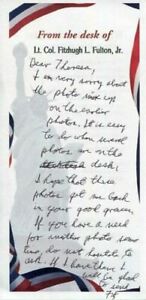 From the desk of
Lt. Col. Fitzhugh L. Fulton, Jr.
Dear Theresa,
I am very sorry about
the photo mix up
on the earlier
photos. It is easy
to do when several
photos are on the
desk.
I hope that these
photos get me back
in your good graces.
If you have a need
for another photo some
time, do not hesitate to
ask. If I have them I
will be glad
to send